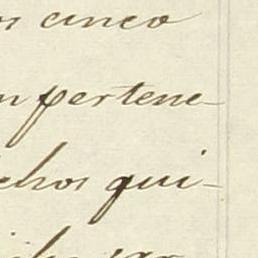 os cinco
n pertene-
chos qui-